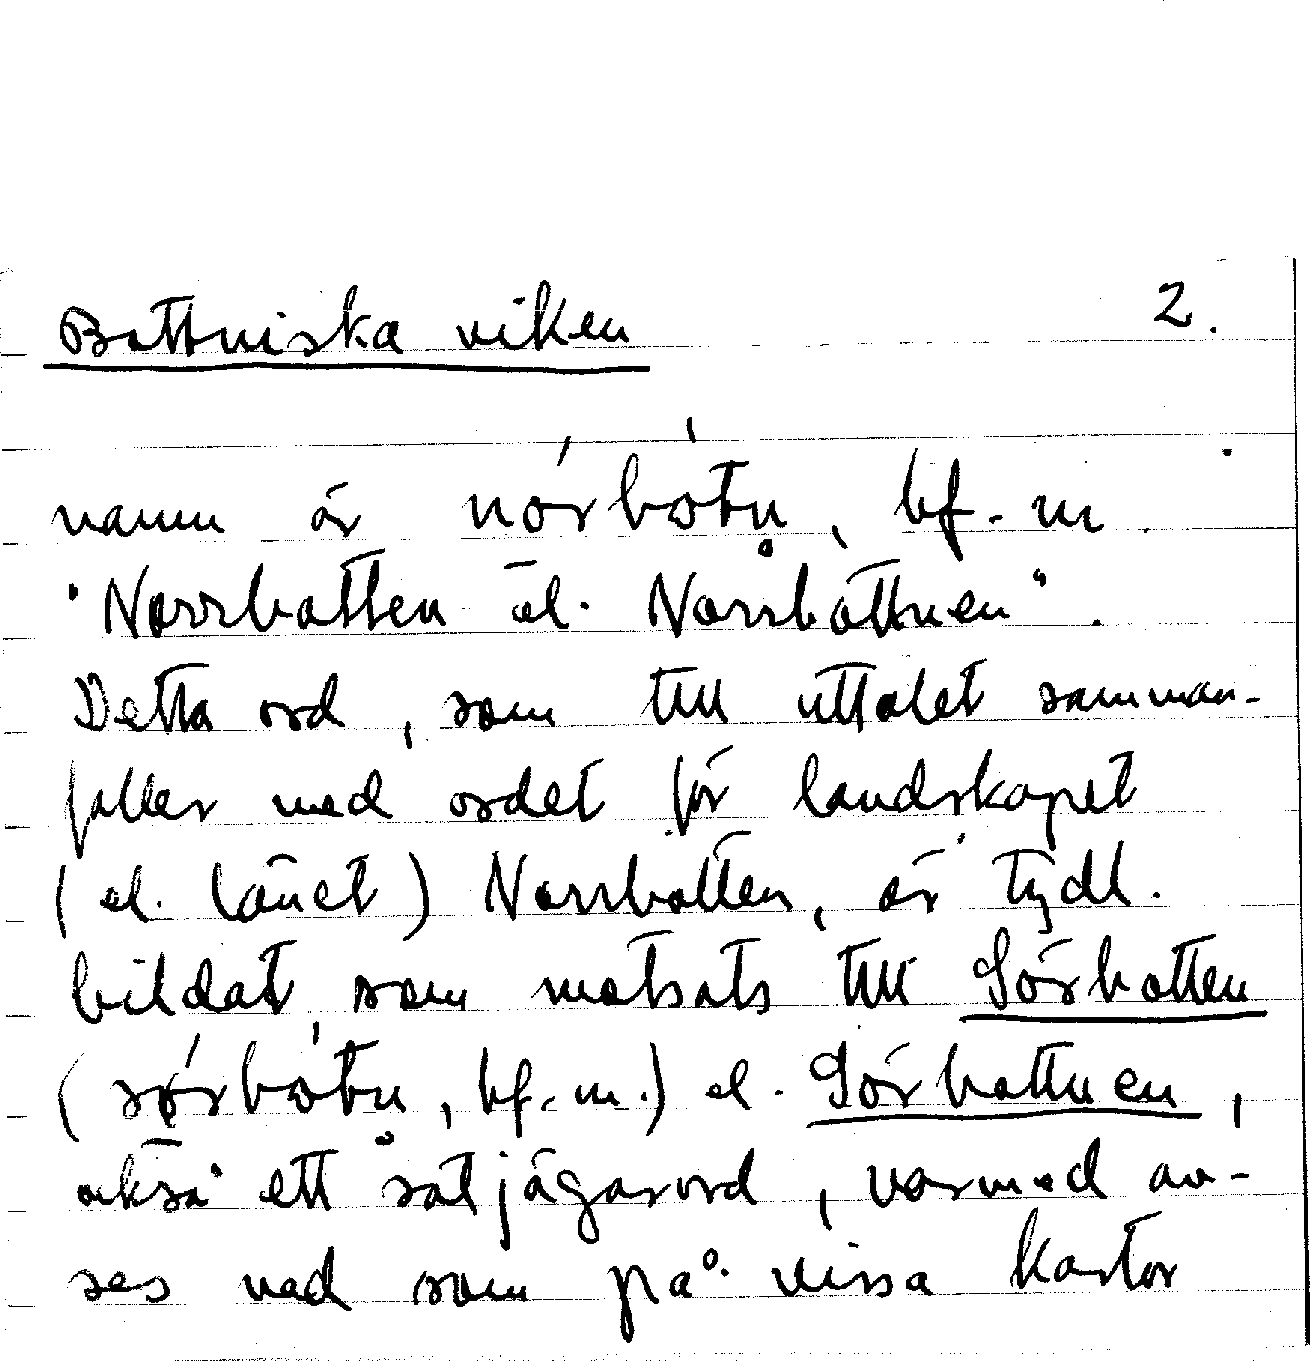 Bottniska viken 2.
namn är nórbòtn̥, bf. m
"Norrbotten el. Norrbottnen".
Detta ord, som till uttalet samman-
faller med ordet för landskapet
(el. länet) Norrbotten, är tydl.
bildat som motsats till Sörbotten
(sǿrbòtn̥, bf. m.) el. Sörbottnen,
också ett säljägarord, varmed av-
ses vad som på vissa kartor